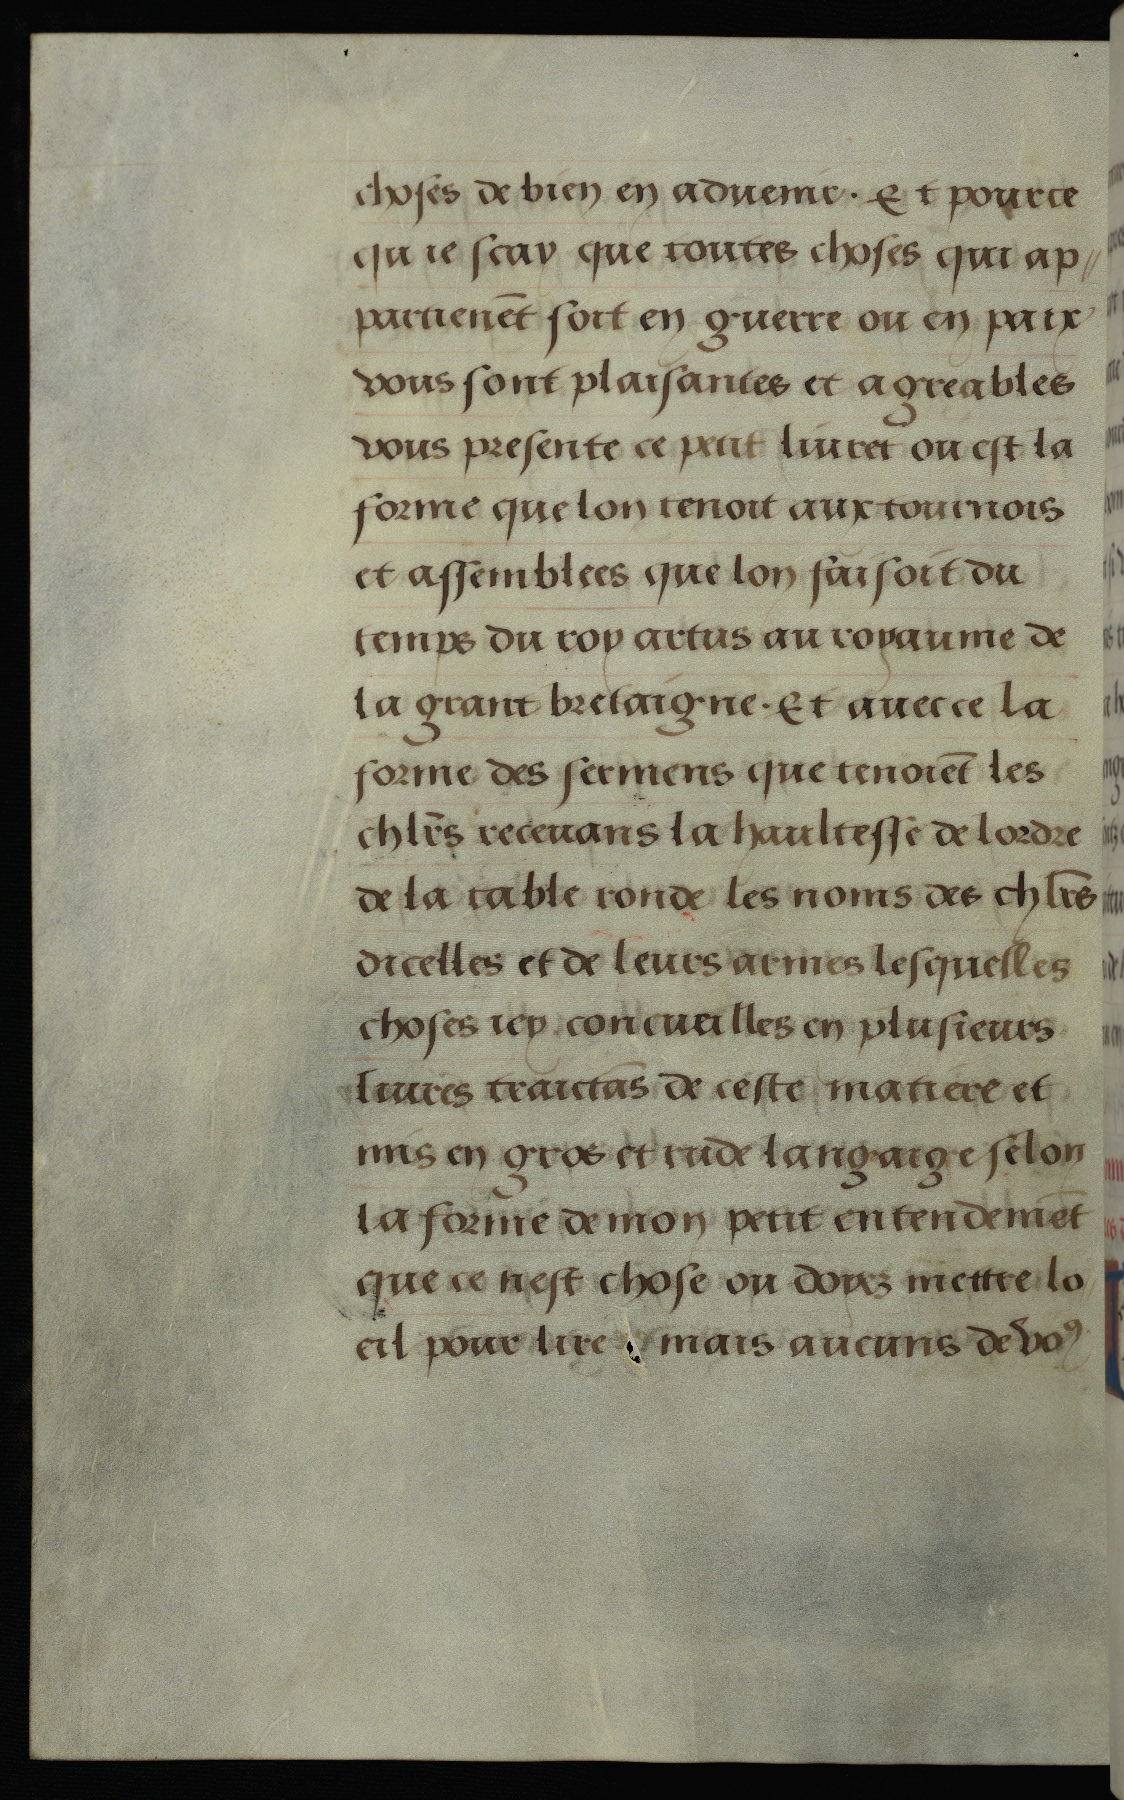 choses de bien en aduenir. Et pource
qu ie scay que toutes choses qui ap//
partienēt soit en guerre ou en paix
vous sont plaisantes et agreables
vous presente ce petit liuret ou est la
forme que lon tenoit aux tournois
et assemblees que lon faisoit du
temps du roy artus au royaume de
la grant bretaigne. Et auecce la
forme des sermens que tenoiēt les
chlr̄s receuans la haultesse de lordre
de la table ronde les noms des chlr̄s
dicelles et de leurs armes lesquelles
choses iey concueilles en plusieurs
liures traictās de ceste matiere et
mis en gros et rude langaige selon
la forme de mon petit entendemēt
que ce nest chose ou doyez mettre lo
eil pour lire mais aucuns de voꝰ